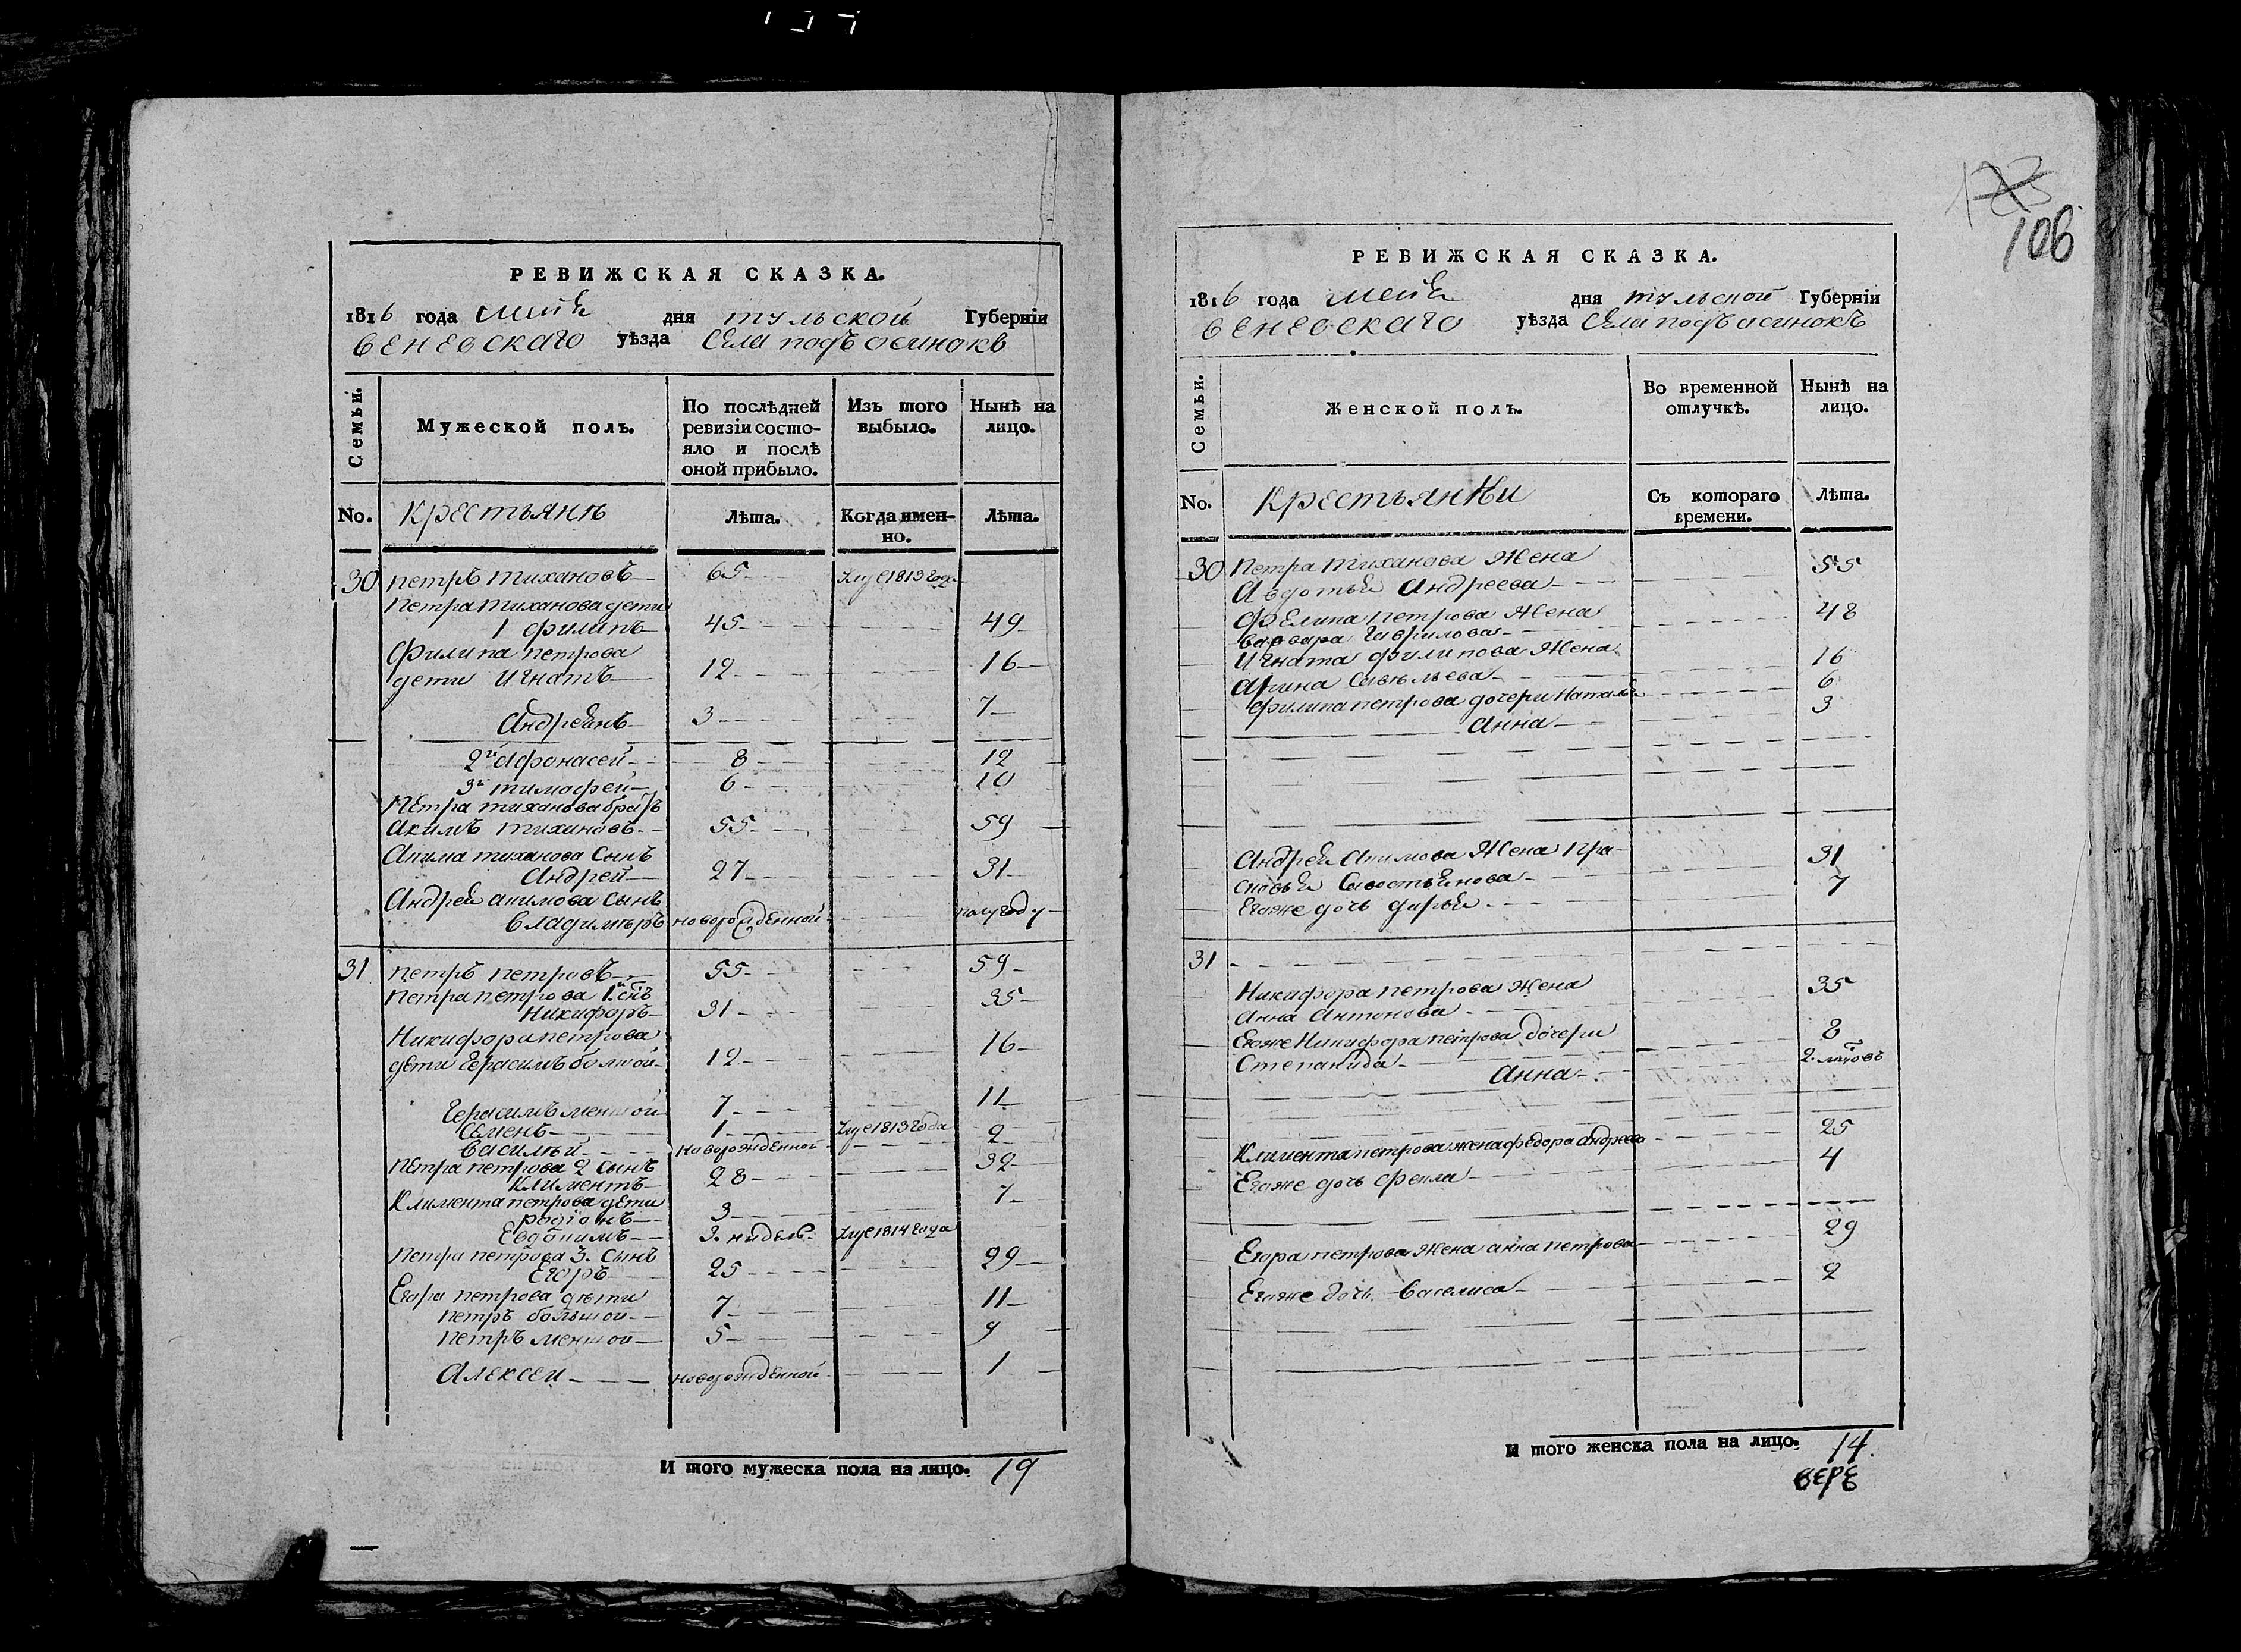 РЕВИЖСКАЯ СКАЗКА.
1816 года мая дня тульской Губерніи
веневскаго уѣзда Села подъ осинокъ
Семьи.
Мужеской полъ.
По послѣдней ревизіи состо-
яло и послѣ
оной прибыло.
Изъ того
выбыло.
Нынѣ на
лицо.
No. Крестьянѣ Лѣта. Когда имен-
но. Лѣта.
30 петръ тихановъ 65 1813 года
Петра тиханова дети
1 филипъ 45 49
Филипа петрова
дети Игнатъ 12 16
Андреянъ 3 7
2й Афонасей 8 12
3й тимофей 6 10
Петра тиханова братъ
Акимъ тихановъ 55 59
Акима тиханова Сынъ
Андрей 27 31
Андрея акимова Сынъ
Владимѣръ новорожденной полугоду
31 петръ петровъ 55 59
Петра петрова 1й снъ
Никифоръ 31 35
Никифора петрова
дети Герасимъ болшой 12 16
Герасимъ меншой 7 11
Семенъ 1 1813 года
Василѣй новорожденной 2
Петра петрова 2 Сынъ
Климентъ 28 32
Климента петрова дети
родіонъ 3 7
Евдокимъ 3. нидель 1814 года
Петра петрова 3. Сынъ
Егоръ 25 29
Егора петрова дѣти
петръ большой 7 11
петръ меншой 5 9
Алексей новорожденной 1
И того мужеска пола на лицо. 19
106
РЕВИЖСКАЯ СКАЗКА.
1816 года мая дня тульской Губерніи
веневскаго уѣзда Села подъ осинокъ
Семьи.
Женской полъ.
Во временной
отлучкѣ.
Нынѣ на
лицо.
No. Крестьянки Съ котораго
времени. Лѣта.
30 Петра тиханова Жена
Авдотья Андреева 55
Филипа петрова Жена
варвара Гаврилова 48
Игната филипова Жена
Арина Савельева 16
Филипа петрова дочери Наталья 6
Анна 3
Андрея Акимова Жена Пра-
сковья Савостьянова 31
Егоже дочь дарья 7
31
Никифора петрова Жена
Анна Антонова 35
Егоже Никифора петрова дочери
Степанида 8
Анна 2. мцовъ
Климента петрова жена федора андреева 25
Егоже дочь фекла 4
Егора петрова Жена анна петрова 29
Егоже дочь Василиса 2
И того женска пола на лицо. 14
вере